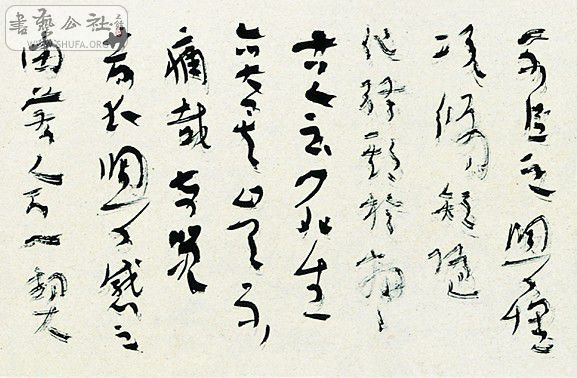 書藝公社
WWW.SHUFA.ORG
不以之興懷
況修短隨
化終期於盡
古人云死生
亦大矣豈不
痛哉每覽
昔人興感之
由若合一契